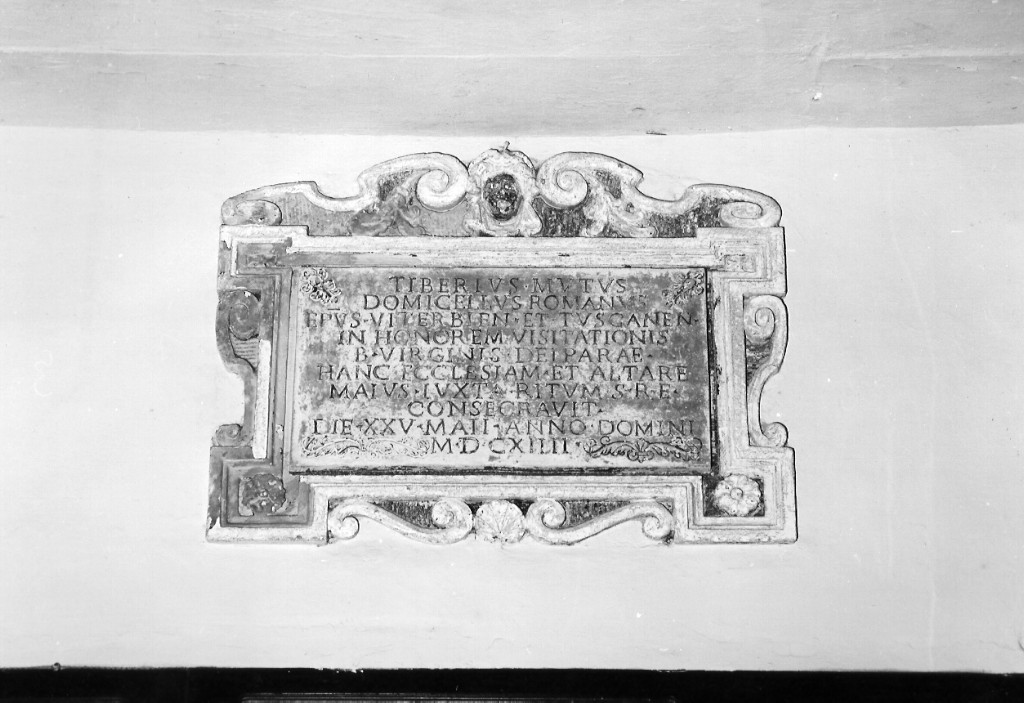 TIBERIVS·MVTVS
DOMICELLVS·ROMANVS
EPVS·VITERBIEN·ET·TVSCANEN·
IN HONOREM VISITATIONIS
B·VIRGINIS DEIPARAE·
HANC ECCLESIAM·ET ALTARE
MAIVS·IVXTA·RITVM·S·R·E·
CONSECRAVIT·
DIE·XXV·MAII·ANNO DOMINI
M·D·CXIIII